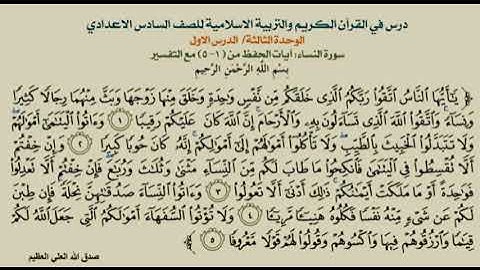 درس في القرآن الكريم والتربية الاسلامية للصف السادس الاعدادي
الوحدة الثالثة/ الدرس الاول
سورة النساء: آيات الحفظ من (١-٥) مع التفسير
بِسْمِ اللَّهِ الرَّحْمَٰنِ الرَّحِيمِ
﴿ يَٰٓأَيُّهَا النَّاسُ اتَّقُوا۟ رَبَّكُمُ الَّذِى خَلَقَكُم مِّن نَّفْسٍ وَٰحِدَةٍ وَخَلَقَ مِنْهَا زَوْجَهَا وَبَثَّ مِنْهُمَا رِجَالًا كَثِيرًا
وَنِسَآءً ۚ وَاتَّقُوا۟ اللَّهَ الَّذِى تَسَآءَلُونَ بِهِۦ وَالْأَرْحَامَ ۚ إِنَّ اللَّهَ كَانَ عَلَيْكُمْ رَقِيبًا ١ وَءَاتُوا۟ الْيَتَٰمَىٰٓ أَمْوَٰلَهُمْ ۖ
وَلَا تَتَبَدَّلُوا۟ الْخَبِيثَ بِالطَّيِّبِ ۖ وَلَا تَأْكُلُوٓا۟ أَمْوَٰلَهُمْ إِلَىٰٓ أَمْوَٰلِكُمْ ۚ إِنَّهُۥ كَانَ حُوبًا كَبِيرًا ٢ وَإِنْ خِفْتُمْ
أَلَّا تُقْسِطُوا۟ فِى الْيَتَٰمَىٰ فَانكِحُوا۟ مَا طَابَ لَكُم مِّنَ النِّسَآءِ مَثْنَىٰ وَثُلَٰثَ وَرُبَٰعَ ۖ فَإِنْ خِفْتُمْ أَلَّا تَعْدِلُوا۟
فَوَٰحِدَةً أَوْ مَا مَلَكَتْ أَيْمَٰنُكُمْ ۚ ذَٰلِكَ أَدْنَىٰٓ أَلَّا تَعُولُوا۟ ٣ وَءَاتُوا۟ النِّسَآءَ صَدُقَٰتِهِنَّ نِحْلَةً ۚ فَإِن طِبْنَ
لَكُمْ عَن شَىْءٍ مِّنْهُ نَفْسًا فَكُلُوهُ هَنِيٓـًٔا مَّرِيٓـًٔا ٤ وَلَا تُؤْتُوا۟ السُّفَهَآءَ أَمْوَٰلَكُمُ الَّتِى جَعَلَ اللَّهُ لَكُمْ
قِيَٰمًا وَارْزُقُوهُمْ فِيهَا وَاكْسُوهُمْ وَقُولُوا۟ لَهُمْ قَوْلًا مَّعْرُوفًا ٥ ﴾
صدق الله العلي العظيم